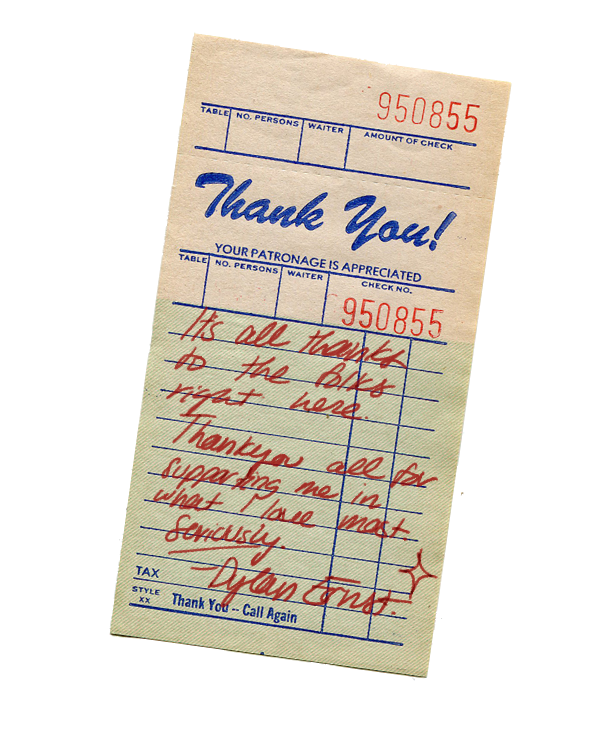 950855
TABLE NO. PERSONS WAITER AMOUNT OF CHECK
Thank You!
YOUR PATRONAGE IS APPRECIATED
TABLE NO. PERSONS WAITER CHECK NO.
950855
It's all thanks
to the folks
right here.
Thankyou all for
supporting me in
what I love most.
Seriously.
TAX
—Dylan Ernst.
STYLE
XX
Thank You -- Call Again